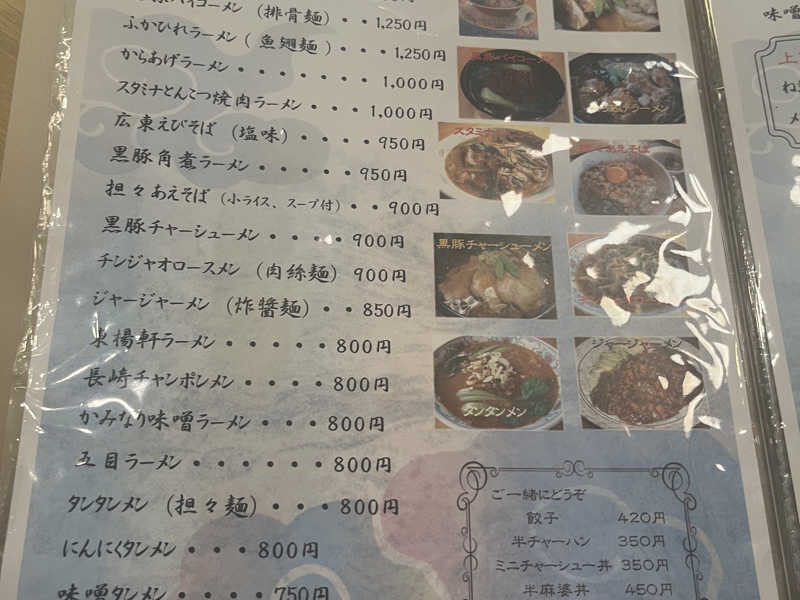 パイコーメン (排骨麺)・・1,250円
ふかひれラーメン (魚翅麺)・・・1,250円
からあげラーメン・・・・・・・1,000円
スタミナとんこつ焼肉ラーメン・・・1,000円
広東えびそば (塩味)・・・・950円
黒豚角煮ラーメン・・・・・950円
担々あえそば (小ライス、スープ付)・・900円
黒豚チャーシューメン・・・・900円
チンジャオロースメン (肉絲麺) 900円
ジャージャーメン (炸醬麺)・・850円
東揚軒ラーメン・・・・・800円
長崎チャンポンメン・・・・800円
かみなり味噌ラーメン・・・800円
五目ラーメン・・・・・・800円
タンタンメン (担々麺)・・・800円
にんにくタンメン・・・800円
味噌タンメン・・・・750円
スタミナ
黒豚チャーシューメン
ジャージャーメン
タンタンメン
ご一緒にどうぞ
餃子 420円
半チャーハン 350円
ミニチャーシュー丼 350円
半麻婆丼 450円
味噌
上
ね
メ